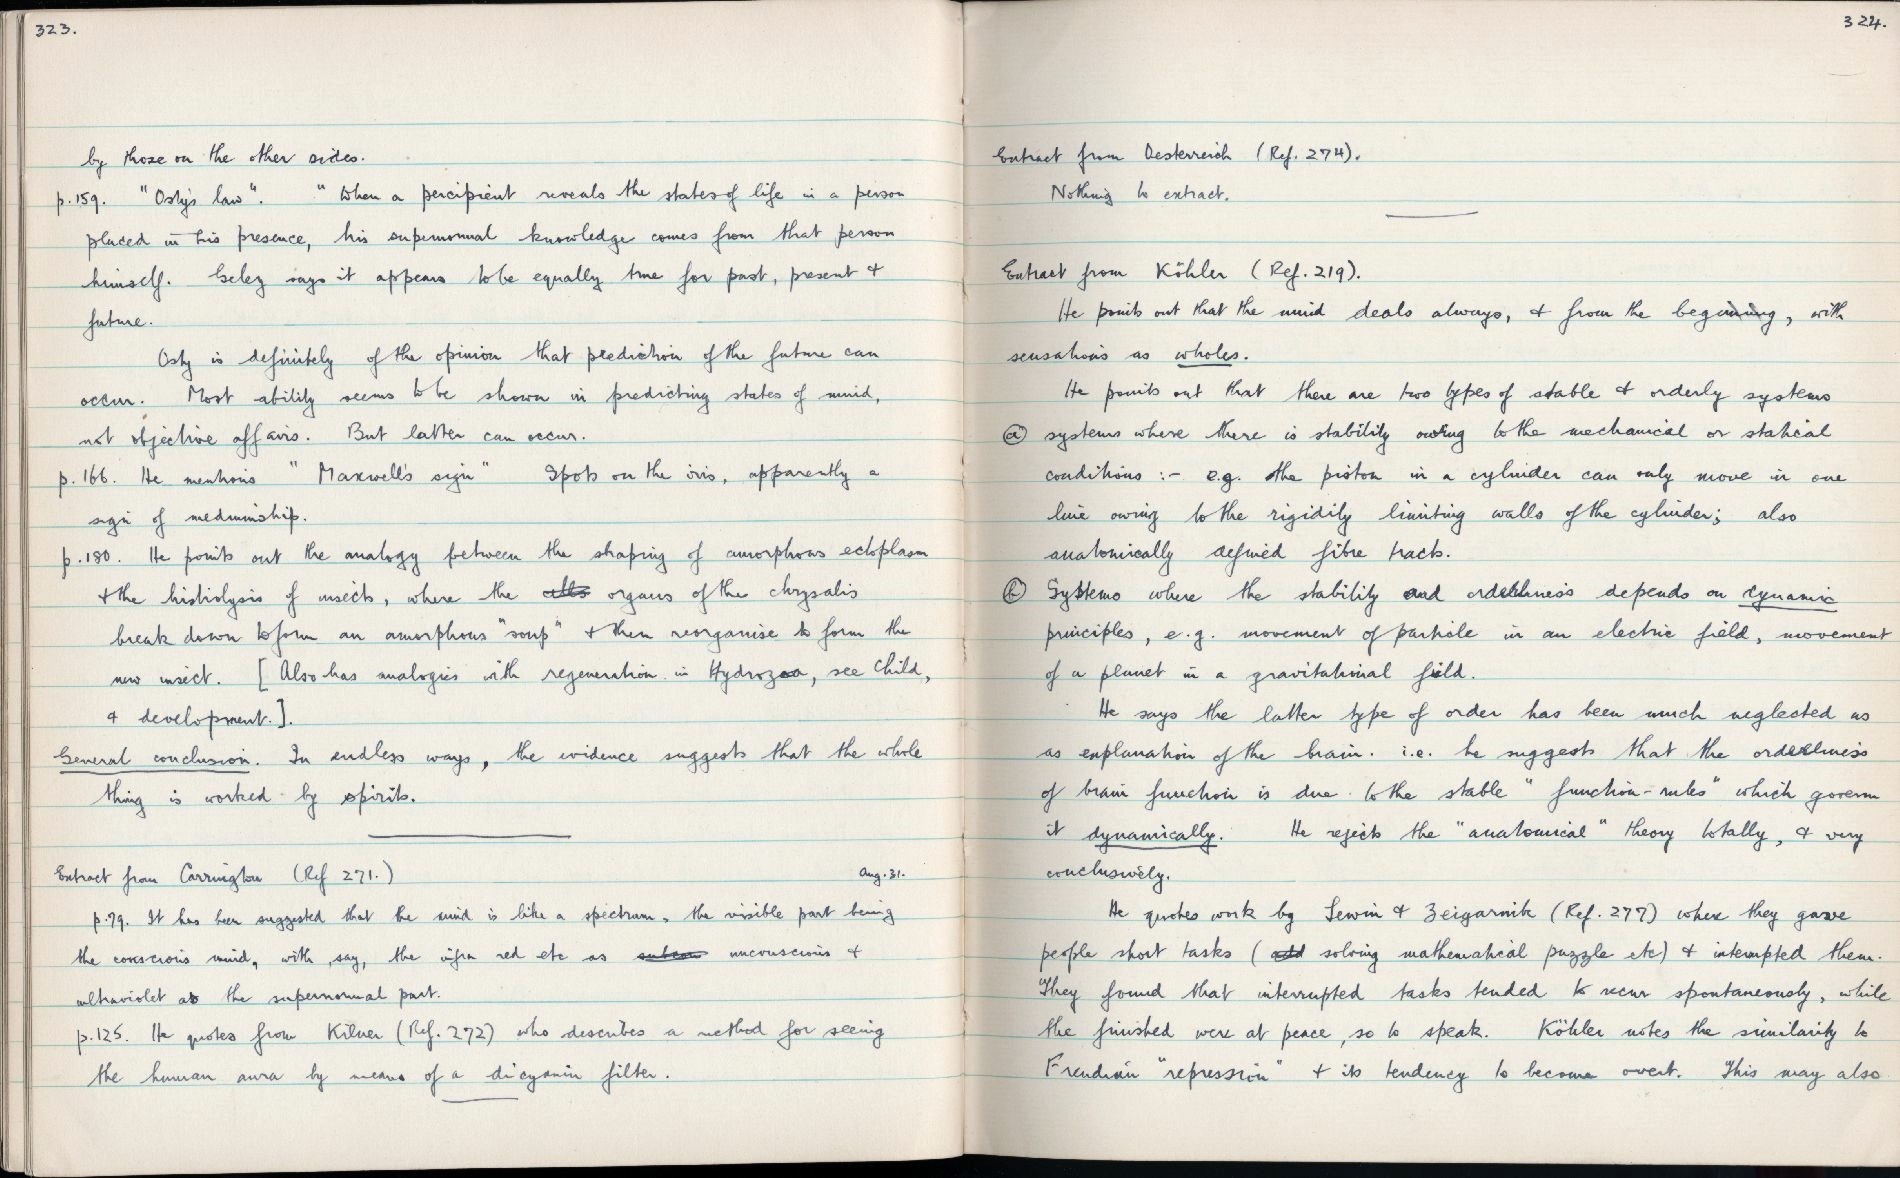 323.
by those on the other sides.
p.159. "Osty's law". "When a percipient reveals the states of life in a person
placed in his presence, his supernormal knowledge comes from that person
himself. Geley says it appears to be equally true for past, present &
future.
Osty is definitely of the opinion that prediction of the future can
occur. Most ability seems to be shown in predicting states of mind,
not objective affairs. But latter can occur.
p.166. He mentions "Maxwell's sign" Spots on the iris, apparently a
sign of mediumship.
p.180. He points out the analogy between the shaping of amorphous ectoplasm
& the histolysis of insects, where the organs of the chrysalis
break down to form an amorphous "soup" & then reorganise to form the
new insect. [Also has analogies with regeneration in Hydrozoa, see Child,
& development.].
General conclusion. In endless ways, the evidence suggests that the whole
thing is worked by spirits.
Extract from Carrington (Ref 271.) Aug. 31.
p.79. It has been suggested that the mind is like a spectrum, the visible part being
the conscious mind, with, say, the infra red etc as unconscious &
ultraviolet as the supernormal part.
p.125. He quotes from Kilner (Ref. 272) who describes a method for seeing
the human aura by means of a dicyanin filter.
324.
Extract from Oesterreich (Ref. 274).
Nothing to extract.
Extract from Köhler (Ref. 219).
He points out that the mind deals always, & from the beginning, with
sensations as wholes.
He points out that there are two types of stable & orderly systems
(a) systems where there is stability owing to the mechanical or statical
conditions :- e.g. the piston in a cylinder can only move in one
line owing to the rigidily limiting walls of the cylinder; also
anatomically defined fibre tracts.
(b) Systems where the stability and orderliness depends on dynamic
principles, e.g. movement of particle in an electric field, movement
of a planet in a gravitational field.
He says the latter type of order has been much neglected as
as explanation of the brain. i.e. he suggests that the orderliness
of brain function is due to the stable "function-rules" which govern
it dynamically. He rejects the "anatomical" theory totally, & very
conclusively.
He quotes work by Lewin & Zeigarnik (Ref. 277) where they gave
people short tasks (solving mathematical puzzle etc) & interrupted them.
They found that interrupted tasks tended to recur spontaneously, while
the finished were at peace, so to speak. Köhler notes the similarity to
Freudian "repression" & its tendency to become overt. This may also